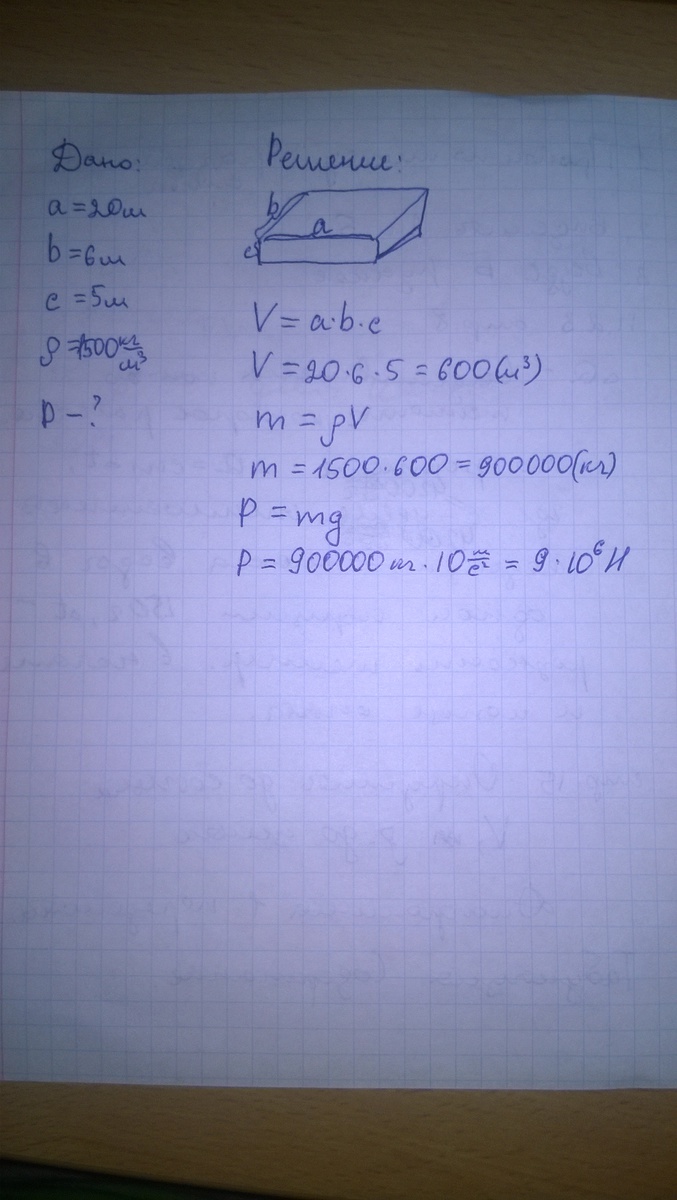 Дано:
a = 20м
b = 6м
c = 5м
ρ = 1500 кг/м³
P - ?
Решение:
b
a
c
V = a·b·c
V = 20·6·5 = 600(м³)
m = ρV
m = 1500·600 = 900000(кг)
P = mg
P = 900000 кг · 10 м/с² = 9·10⁶ Н